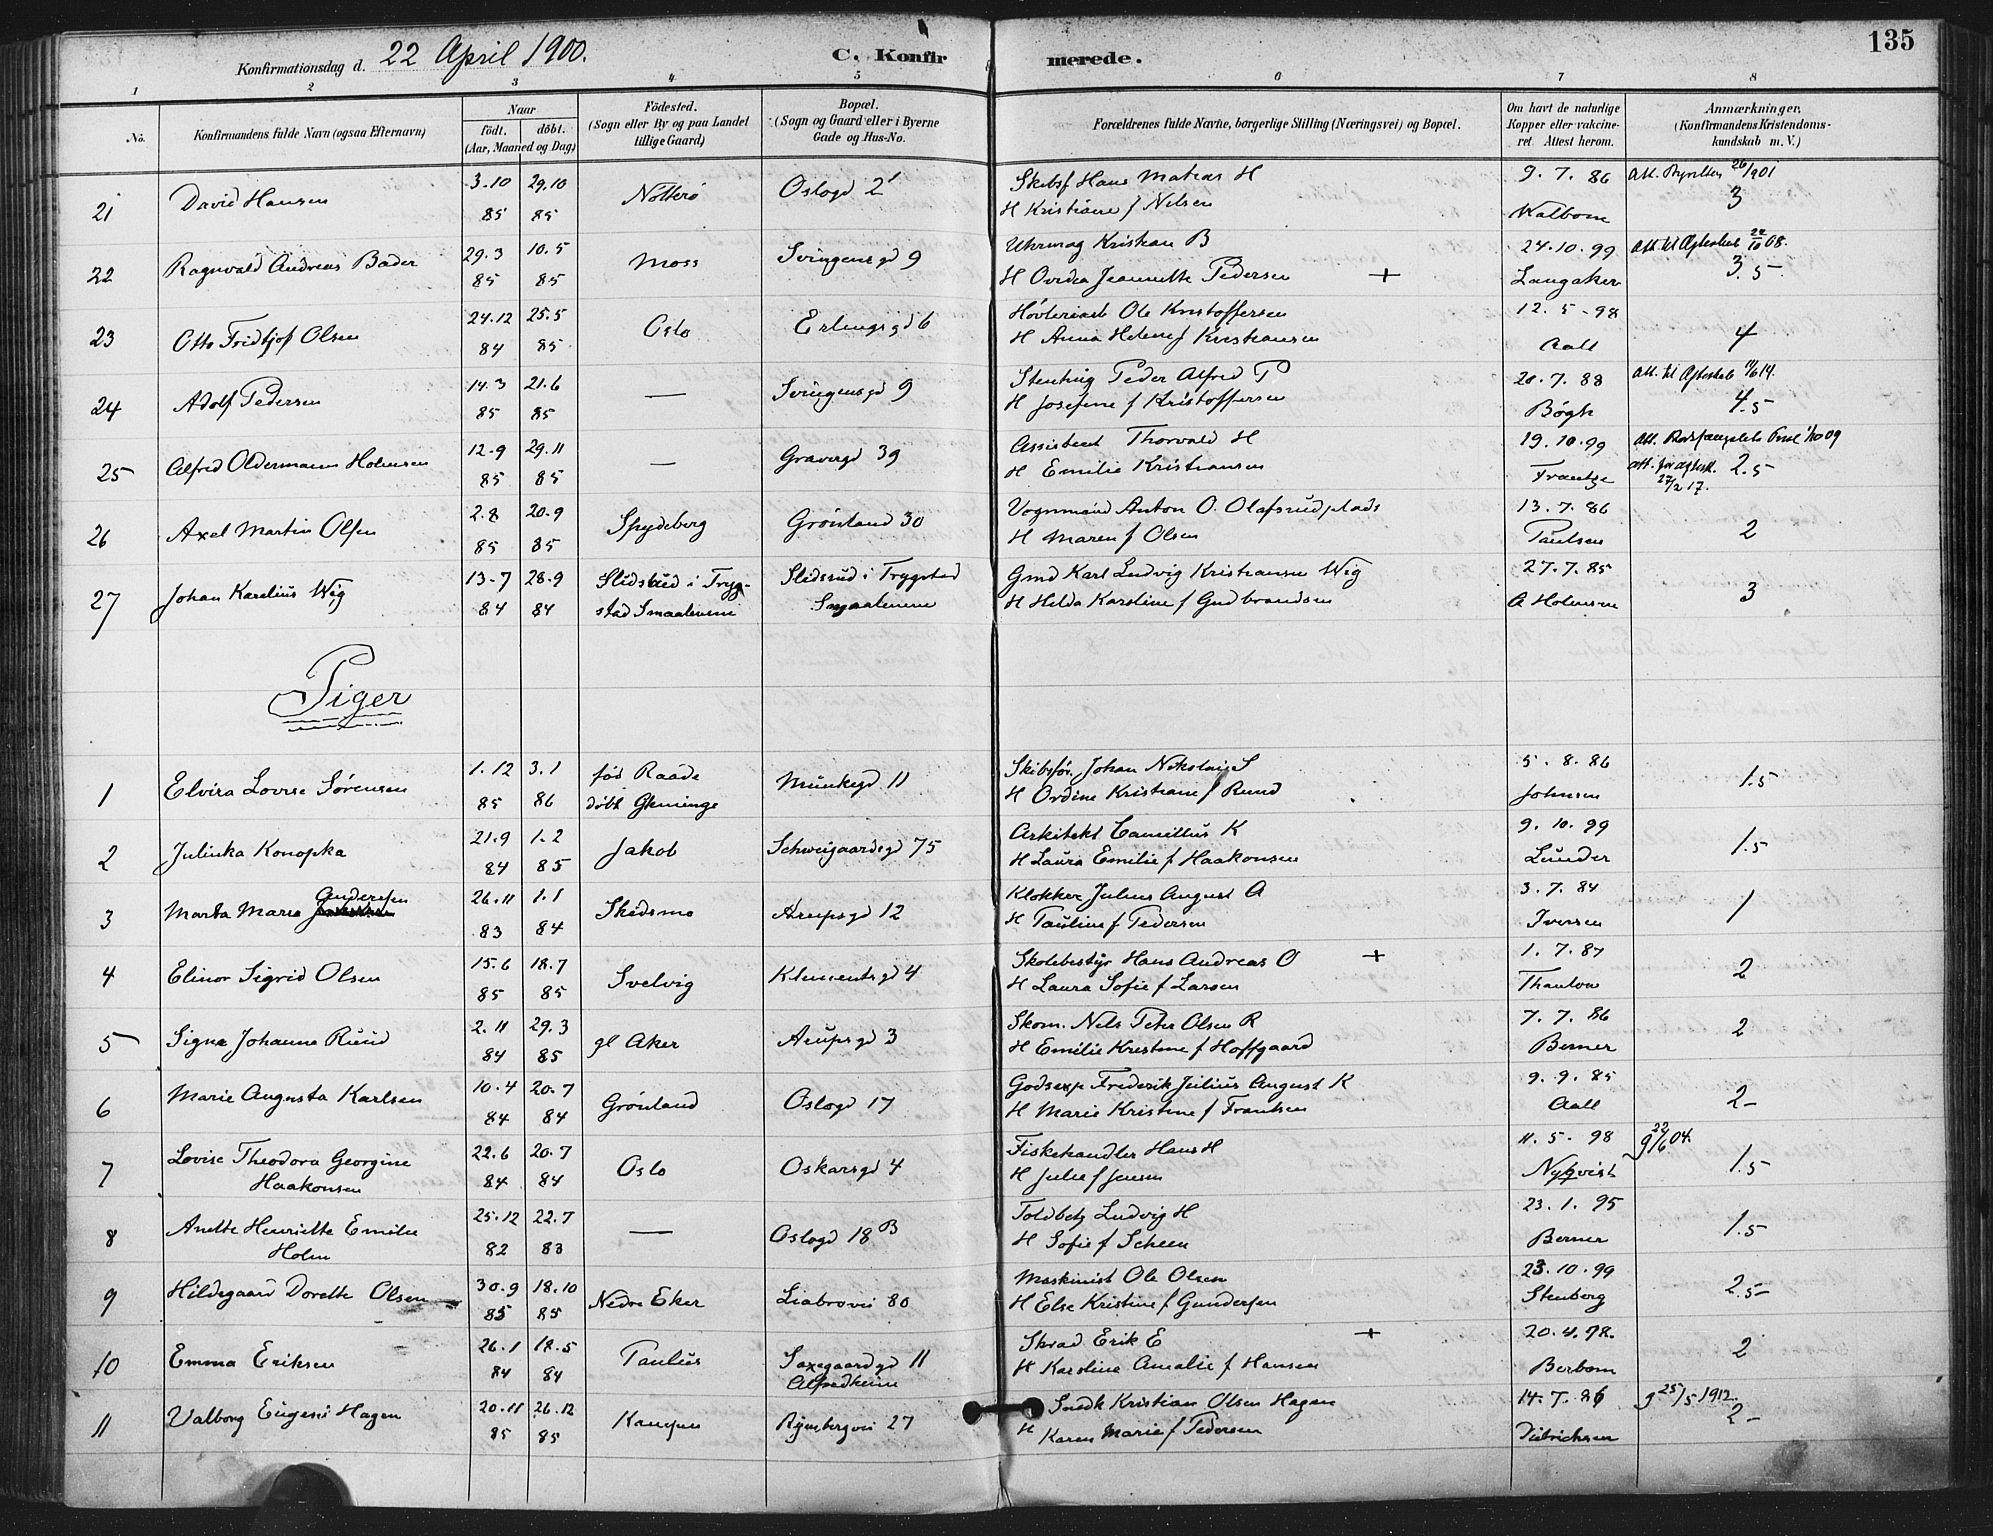 Konfirmationsdag d. 22 April 1900.
C. Konfirmerede.
135
1 2 3 4 5 6 7 8
No.
Konfirmandens fulde Navn (ogsaa Efternavn)
Naar
født. døbt.
(Aar, Maaned og Dag)
Födested.
(Sogn eller By og paa Landet
tillige Gaard)
Bopæl.
(Sogn og Gaard eller i Byerne
Gade og Hus-No.
Forældrenes fulde Navne, borgerlige Stilling (Næringsvei) og Bopæl.
Om havt de naturlige
Kopper eller vakcine-
ret Attest herom.
Anmærkninger,
(Konfirmandens Kristendoms-
kundskab m. V.)
21 David Hansen 3.10 85 29.10 85 Nøtterø Oslogd 2
Skibsf Hans Matias H
H Kristiane f Nilsen
9. 7. 86 Walbom 26/1 901 3
22 Ragnvald Andreas Bader 29.3 85 10.5 85 Moss Svingensgd 9
Uhrmag Kristian B
H Ovidia Jeannette Pedersen +
24.10.99 Langaker Att. til Ægteskab 24/10 08. 3.5
23 Otto Fridtjof Olsen 24.12 84 25.5 85 Oslo Erlingsgd 6
Høvleriarb Ole Kristoffersen
H Anna Helene f Kristiansen
12. 5 - 98 Aall 4
24 Adolf Pedersen 14.3 85 21.6 85 — Svingensgd 9
Stenhug Peder Alfred P
H Josefine f Kristoffersen
20. 7. 88 Bøgh Att. til Ægteskab 11/6 14. 4.5
25 Alfred Oldermann Holmsen 12.9 85 29.11 85 — Gravergd 39
Assistent Thorvald H
H Emilie Kristiansen
19.10.99 Frantze Att. Bodsfængslets 1/10 09
att. for ægtesk. 27/2 17. 2.5
26 Axel Martin Olsen 2.8 85 20.9 85 Spydeberg Grønland 30
Vognmand Anton O. Olafsrudplads
H Maren f Olsen
13. 7. 86 Paulsen 2
27 Johan Karelius Wig 13.7 84 28.9 84 Slidsrud i Tryg-
stad Smaalenene Slidsrud i Trygstad
Smaalenene
Gmd Karl Ludvig Kristiansen Wig
H Hilda Karoline f Gudbrandsen
27. 7. 85 A Holmsen 3
Piger
1 Elvira Lovise Sørensen 1.12 85 3.1 86 fød Raade
døbt Glemminge Munkegd 11
Skibsfør. Johan Nikolai S
H Ordine Kristiane f Rund
5. 8. 86 Johnsen 1.5
2 Julinka Konopka 21.9 84 1.2 85 Jakob Schweigaardsgd 75
Arkitekt Camillus K
H Laura Emilie f Haakonsen
9. 10. 99 Lunder 1.5
3 Marta Marie Andersen 26.11 83 1.1 84 Skedsmo Arupsgd 12
Klokker Julius August A
H Pauline f Pedersen
3. 7. 84 Iversen 1
4 Elinor Sigrid Olsen 15.6 85 18.7 85 Svelvig Klementsgd 4
Skolebestyr Hans Andreas O +
H Laura Sofie f Larsen
1. 7. 87 Thaulow 2
5 Signe Johanne Ruud 2.11 84 29.3 85 gl Aker Arupsgd 3
Skom. Nels Peter Olsen R
H Emilie Kristine f Hoffgaard
7. 7. 86 Berner 2
6 Marie Augusta Karlsen 10.4 84 20.7 84 Grønland Oslogd 17
Godsexp Frederik Julius August K
H Marie Kristine f Frantsen
9. 9. 85 Aall 2-
7 Lovise Theodora Georgine
Haakonsen 22.6 84 20.7 84 Oslo Oskarsgd 4
Fiskehandler Hans H
H Julie f Jensen
11. 5 - 98 Nyqvist g 22/6 04. 1.5
8 Anette Henriette Emilie
Holm 25.12 82 22.7 83 — Oslogd 18 B
Toldbetj Ludvig H
H Sofie f Scheen
23. 1. 95 Berner 1.5
9 Hildegaard Dorette Olsen 30.9 85 18.10 85 Nedre Eker Liabrovei 80
Maskinist Ole Olsen
H Else Kristine f Gundersen
23.10.99 Stenberg 2.5-
10 Emma Eriksen 26.1 84 18.5 84 Paulus Saxegaardsgd 11
Alfredheim
Skræd Erik E +
H Karoline Amalie f Hansen
20.4.98. Berbom 2
11 Valborg Eugeni Hagen 20.11 85 26.12 85 Kampen Rynbergvei 27
Snedk Kristian Olsen Hagen
H Karen Marie f Pedersen
14. 7. 86 Didrichsen g 25/5 1912. 2-